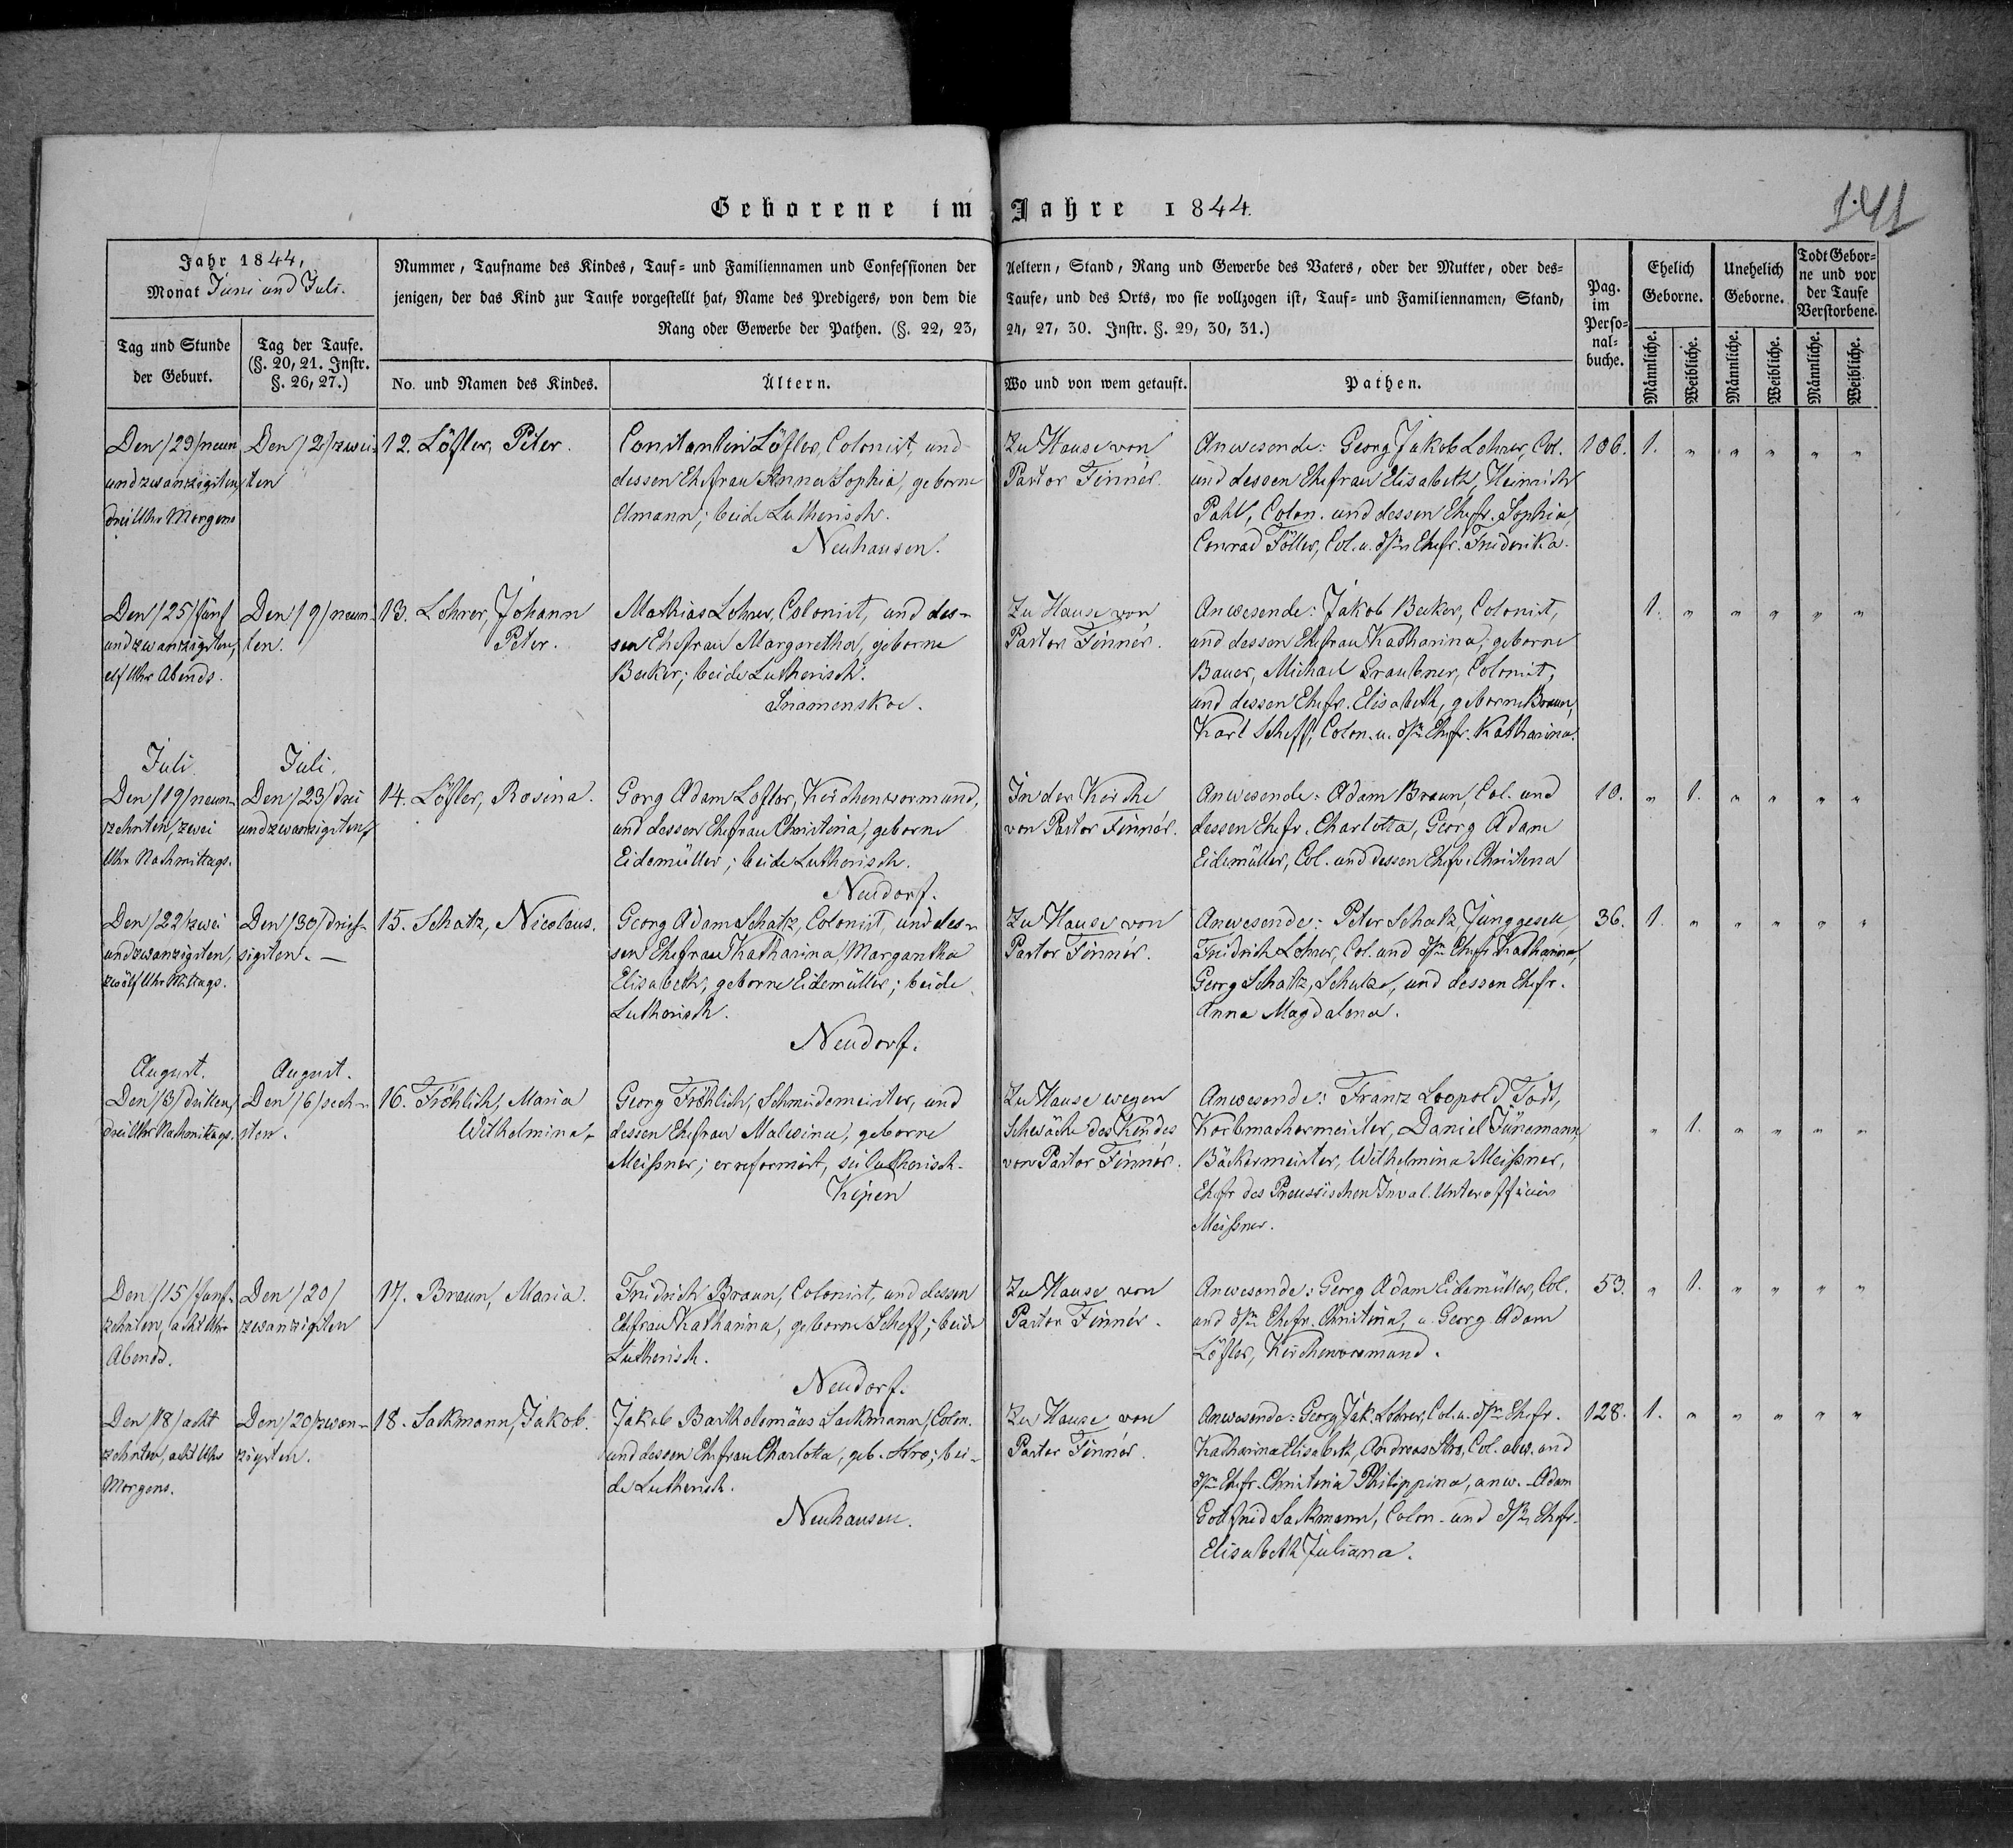 Geborene im Jahre 1844.
141
Jahr 1844,
Monat Juni und Juli.
Tag und Stunde
der Geburt.
Tag der Taufe.
(§. 20, 21. Instr.
§. 26, 27.)
Nummer, Taufname des Kindes, Tauf- und Familiennamen und Confessionen der Aeltern, Stand, Rang und Gewerbe des Vaters, oder der Mutter, oder des-
jenigen, der das Kind zur Taufe vorgestellt hat, Name des Predigers, von dem die Taufe, und des Orts, wo sie vollzogen ist, Tauf- und Familiennamen, Stand,
Rang oder Gewerbe der Pathen. (§. 22, 23, 24, 27, 30. Instr. §. 29, 30, 31.)
No. und Namen des Kindes.
Ältern.
Wo und von wem getauft.
Pathen.
Pag.
im
Perso-
nal-
buche.
Ehelich
Geborne.
Unehelich
Geborne.
Todt Gebor-
ne und vor
der Taufe
Verstorbene.
Männliche.
Weibliche.
Männliche.
Weibliche.
Männliche.
Weibliche.
Den /29/ neun
und zwanzigsten,
drei Uhr Morgens
Den /2/ zwei-
ten
12. Löfler, Peter.
Constantin Löfler, Colonist, und
dessen Ehefrau Anna Sophia, geborne
Elmann; beide Lutherisch.
Neuhausen.
Zu Hause von
Pastor Finnér.
Anwesende: Georg Jakob Lohrer, Col.
und dessen Ehefrau Elisabeth, Heinrich
Pahl, Colon. und dessen Ehefr. Sophia,
Conrad Föller, Col. u. dssn Ehefr. Friderika.
106. 1. " " " " "
Den /25/ fünf
und zwanzigsten,
elf Uhr Abends.
Den /9/ neun-
ten.
13. Lohrer, Johann
Peter.
Mathias Lohrer, Colonist, und des-
sen Ehefrau Margaretha, geborne
Beker; beide Lutherisch.
Snamenskoe.
Zu Hause von
Pastor Finnér.
Anwesende: Jakob Beker, Colonist,
und dessen Ehefrau Katharina, geborne
Bauer, Michael Graubner, Colonist,
und dessen Ehefr. Elisabeth, geborne Braun,
Karl Scheff, Colon. u. dssn Ehefr. Katharina.
1. " " " " "
Juli.
Juli.
Den /19/ neun-
zehnten, zwei
Uhr Nachmittags.
Den /23/ drei
und zwanzigsten,
14. Löfler, Rosina.
Gorg Adam Lofler, Kirchenvormund,
und dessen Ehefrau Christina, geborne
Eidemüller; beide Lutherisch.
Neudorf.
In der Kirche
von Pastor Finnér.
Anwesende: Adam Braun, Col. und
dessen Ehefr. Charlotta, Georg Adam
Eidemüller, Col. und dessen Ehefr. Christena
10. " 1. " " " "
Den /22/ zwei
und zwanzigsten,
zwölf Uhr Mittags.
Den /30/ dreis-
sigsten. —
15. Schatz, Nicolaus.
Georg Adam Schatz, Colonist, und des-
sen Ehefrau Katharina Margaretha
Elisabeth, geborne Eidemüller; beide
Lutherisch.
Neudorf.
Zu Hause von
Pastor Finnér.
Anwesende: Peter Schatz, Junggesell,
Fridrich Lohrer, Col. und dssn Ehefr. Katharina,
Georg Schatz, Schulze, und dessen Ehefr.
Anna Magdalena.
36. 1. " " " " "
August.
August.
Den /3/ dritten,
drei Uhr Nachmittags.
Den /6/ sech-
sten.
16. Fröhlich, Maria
Wilhelmina.
Georg Fröhlich, Schmidemeister, und
dessen Ehefrau Malwina, geborne
Meißner; er reformirt, sie lutherisch.
Kipen
Zu Hause wegen
Schwäche des Kindes
von Pastor Finnér.
Anwesende: Franz Leopold Todt,
Korbmachermeister, Daniel Fünemann,
Bäckermeister, Wilhelmina Meißner,
Ehefr. des Preussischen Inval. Unteroffiziers
Meißner.
" 1. " " " "
Den /15/ fünf-
zehnten, acht Uhr
Abends.
Den /20/
zwanzigsten
17. Braun, Maria.
Fridrich Braun, Colonist, und dessen
Ehefrau Katharina, geborne Scheff; beide
Lutherisch.
Neudorf.
Zu Hause von
Pastor Finnér.
Anwesende: Georg Adam Eidemüller, Col.
und dssn Ehefr. Christina, u. Georg Adam
Löfler, Kirchenvormund.
53. " 1. " " " "
Den /18/ acht
zehnten, acht Uhr
Morgens.
Den /20/ zwan-
zigsten.
18. Sackmann, Jakob.
Jakob Bartholomäus Sackmann, Colon.
und dessen Ehefrau Charlotta, geb. Stro; bei-
de Lutherisch.
Neuhausen.
Zu Hause von
Pastor Finnér.
Anwesende: Georg Jak. Lohrer, Col. u. dssn Ehefr.
Katharina Elisabeth, Andreas Stro, Col. abw. und
dssn Ehefr. Christina Philippina, anw. Adam
Gottfrid Sackmann, Colon. und dssn Ehefr.
Elisabeth Juliana.
128. 1. " " " " "